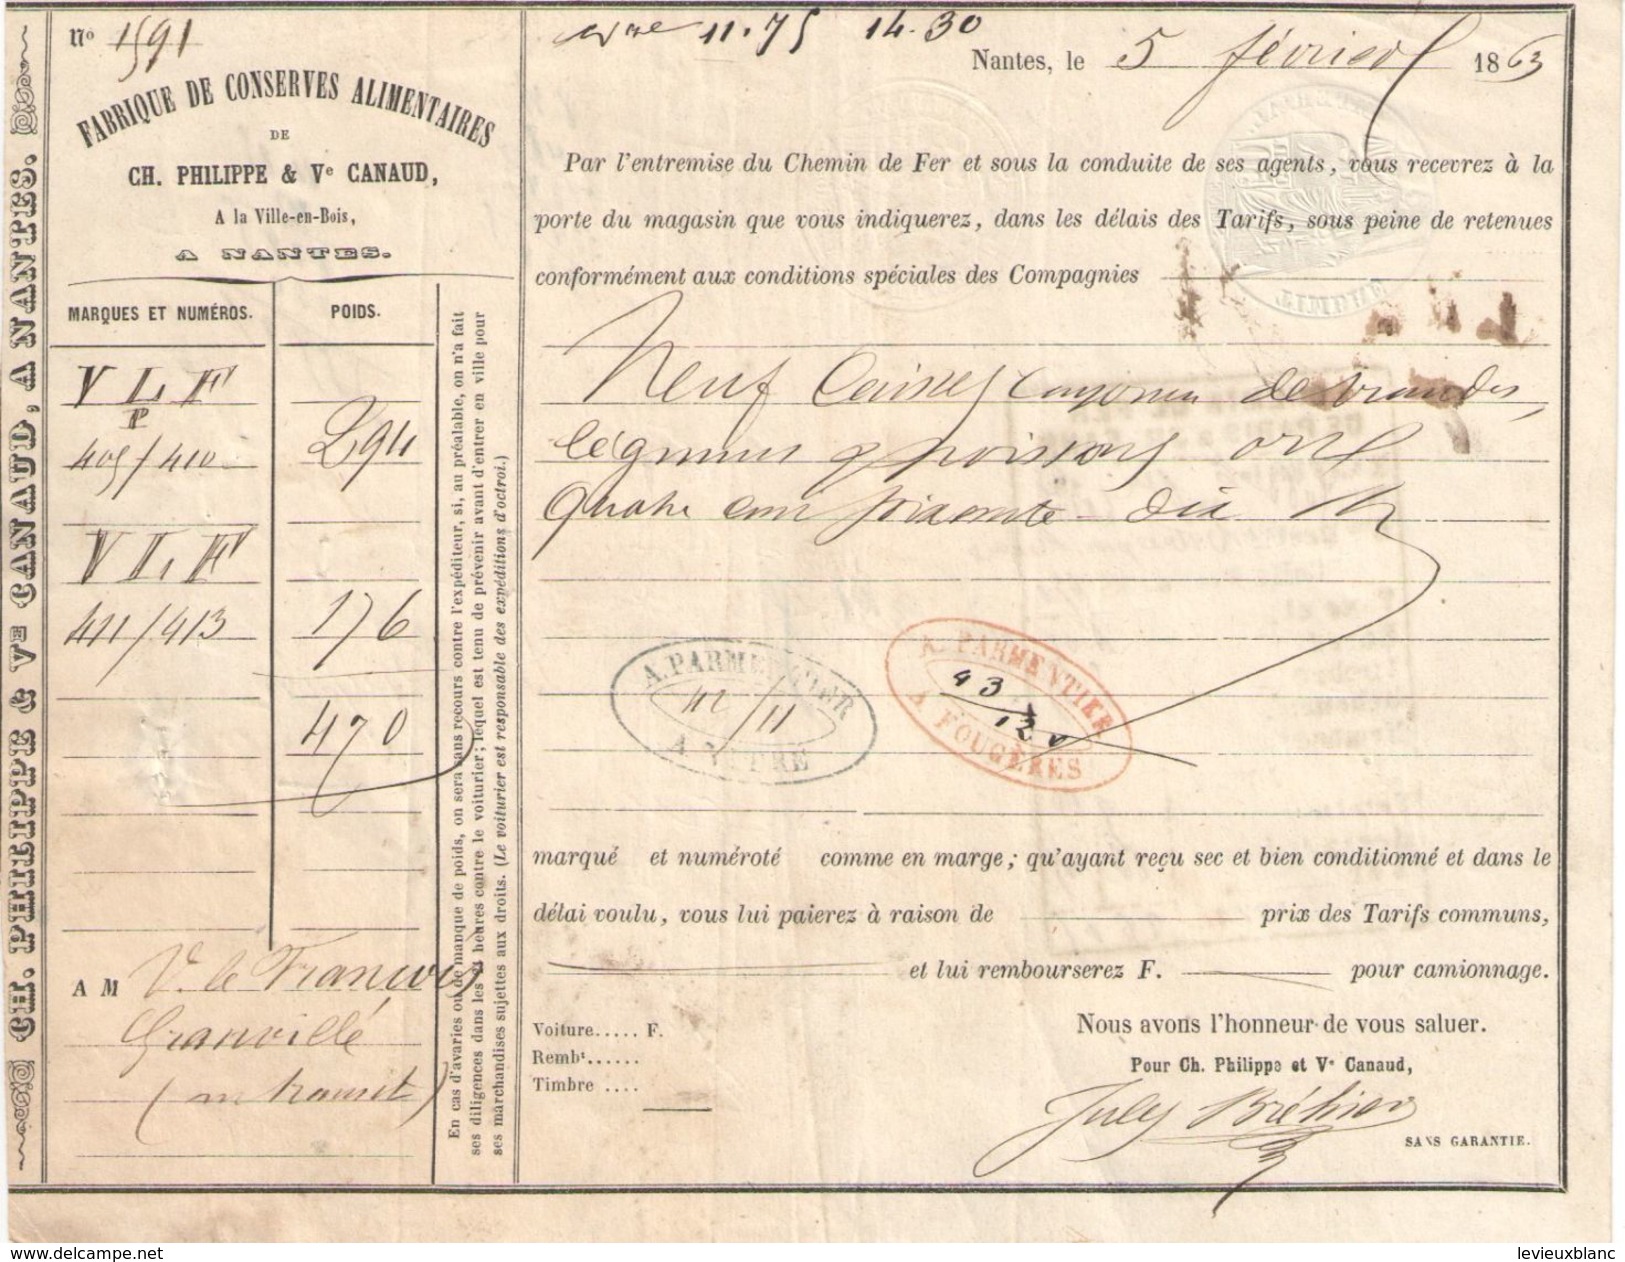 CH. PHILIPPE & Vᵉ CANAUD, A NANTES.
Nº 1591
FABRIQUE DE CONSERVES ALIMENTAIRES
DE
CH. PHILIPPE & Vᵉ CANAUD,
A la Ville-en-Bois,
A NANTES.
MARQUES ET NUMÉROS. POIDS.
V L F
P
409/410 294
V L F
411/413 176
470
A M V. le François
Granville
(en transit)
En cas d'avaries ou de manque de poids, on sera sans recours contre l'expéditeur, si, au préalable, on n'a fait
ses diligences dans les 24 heures contre le voiturier; lequel est tenu de prévenir avant d'entrer en ville pour
ses marchandises sujettes aux droits. (Le voiturier est responsable des expéditions d'octroi.)
11.75 14.30
Nantes, le 5 février 1863
Par l'entremise du Chemin de Fer et sous la conduite de ses agents, vous recevrez à la
porte du magasin que vous indiquerez, dans les délais des Tarifs, sous peine de retenues
conformément aux conditions spéciales des Compagnies
Neuf Caisses de viandes,
légumes & poissons
quatre cent soixante dix K
A. PARMENTIER
42/11
A VITRE
A. PARMENTIER
43
A FOUGÈRES
marqué et numéroté comme en marge; qu'ayant reçu sec et bien conditionné et dans le
délai voulu, vous lui paierez à raison de prix des Tarifs communs,
et lui rembourserez F. pour camionnage.
Voiture..... F.
Rembᵗ......
Timbre ....
Nous avons l'honneur de vous saluer.
Pour Ch. Philippe et Vᵉ Canaud,
Jules Bréhier
SANS GARANTIE.
www.delcampe.net
levieuxblanc